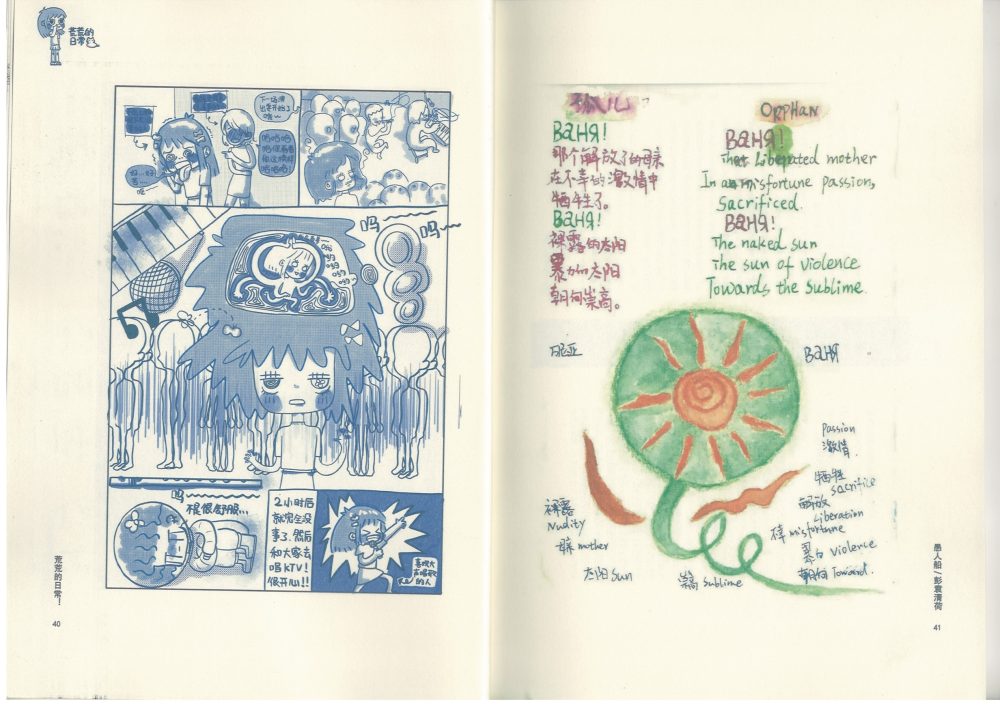 荒荒的
日常
下一场演
出要开始了
哦~
呜呜呜
呜呜呜!
好...好
吧
呜
呜
呜
很很舒服...
2小时后
就完全没
事了.然后
和大家去
唱KTV!
很开心!!
喜欢大
声唱歌
的人
荒荒的日常!
40
孤儿
ваня!
那个解放了的母亲
在不幸的激情中
牺牲了。
ваня!
裸露的太阳
暴力的太阳
朝向崇高。
ORPHAN
ваня!
That Liberated mother
In an misfortune passion,
Sacrificed.
ваня!
The naked sun
The sun of violence
Towards the sublime.
凡尼亚
ваня
Passion
激情
牺牲
sacrifice
解放
Liberation
不幸 misfortune
暴力 violence
朝向 Toward.
裸露
Nudity
母亲 mother
太阳 sun
崇高 sublime
愚人船/彭袁清荷
41